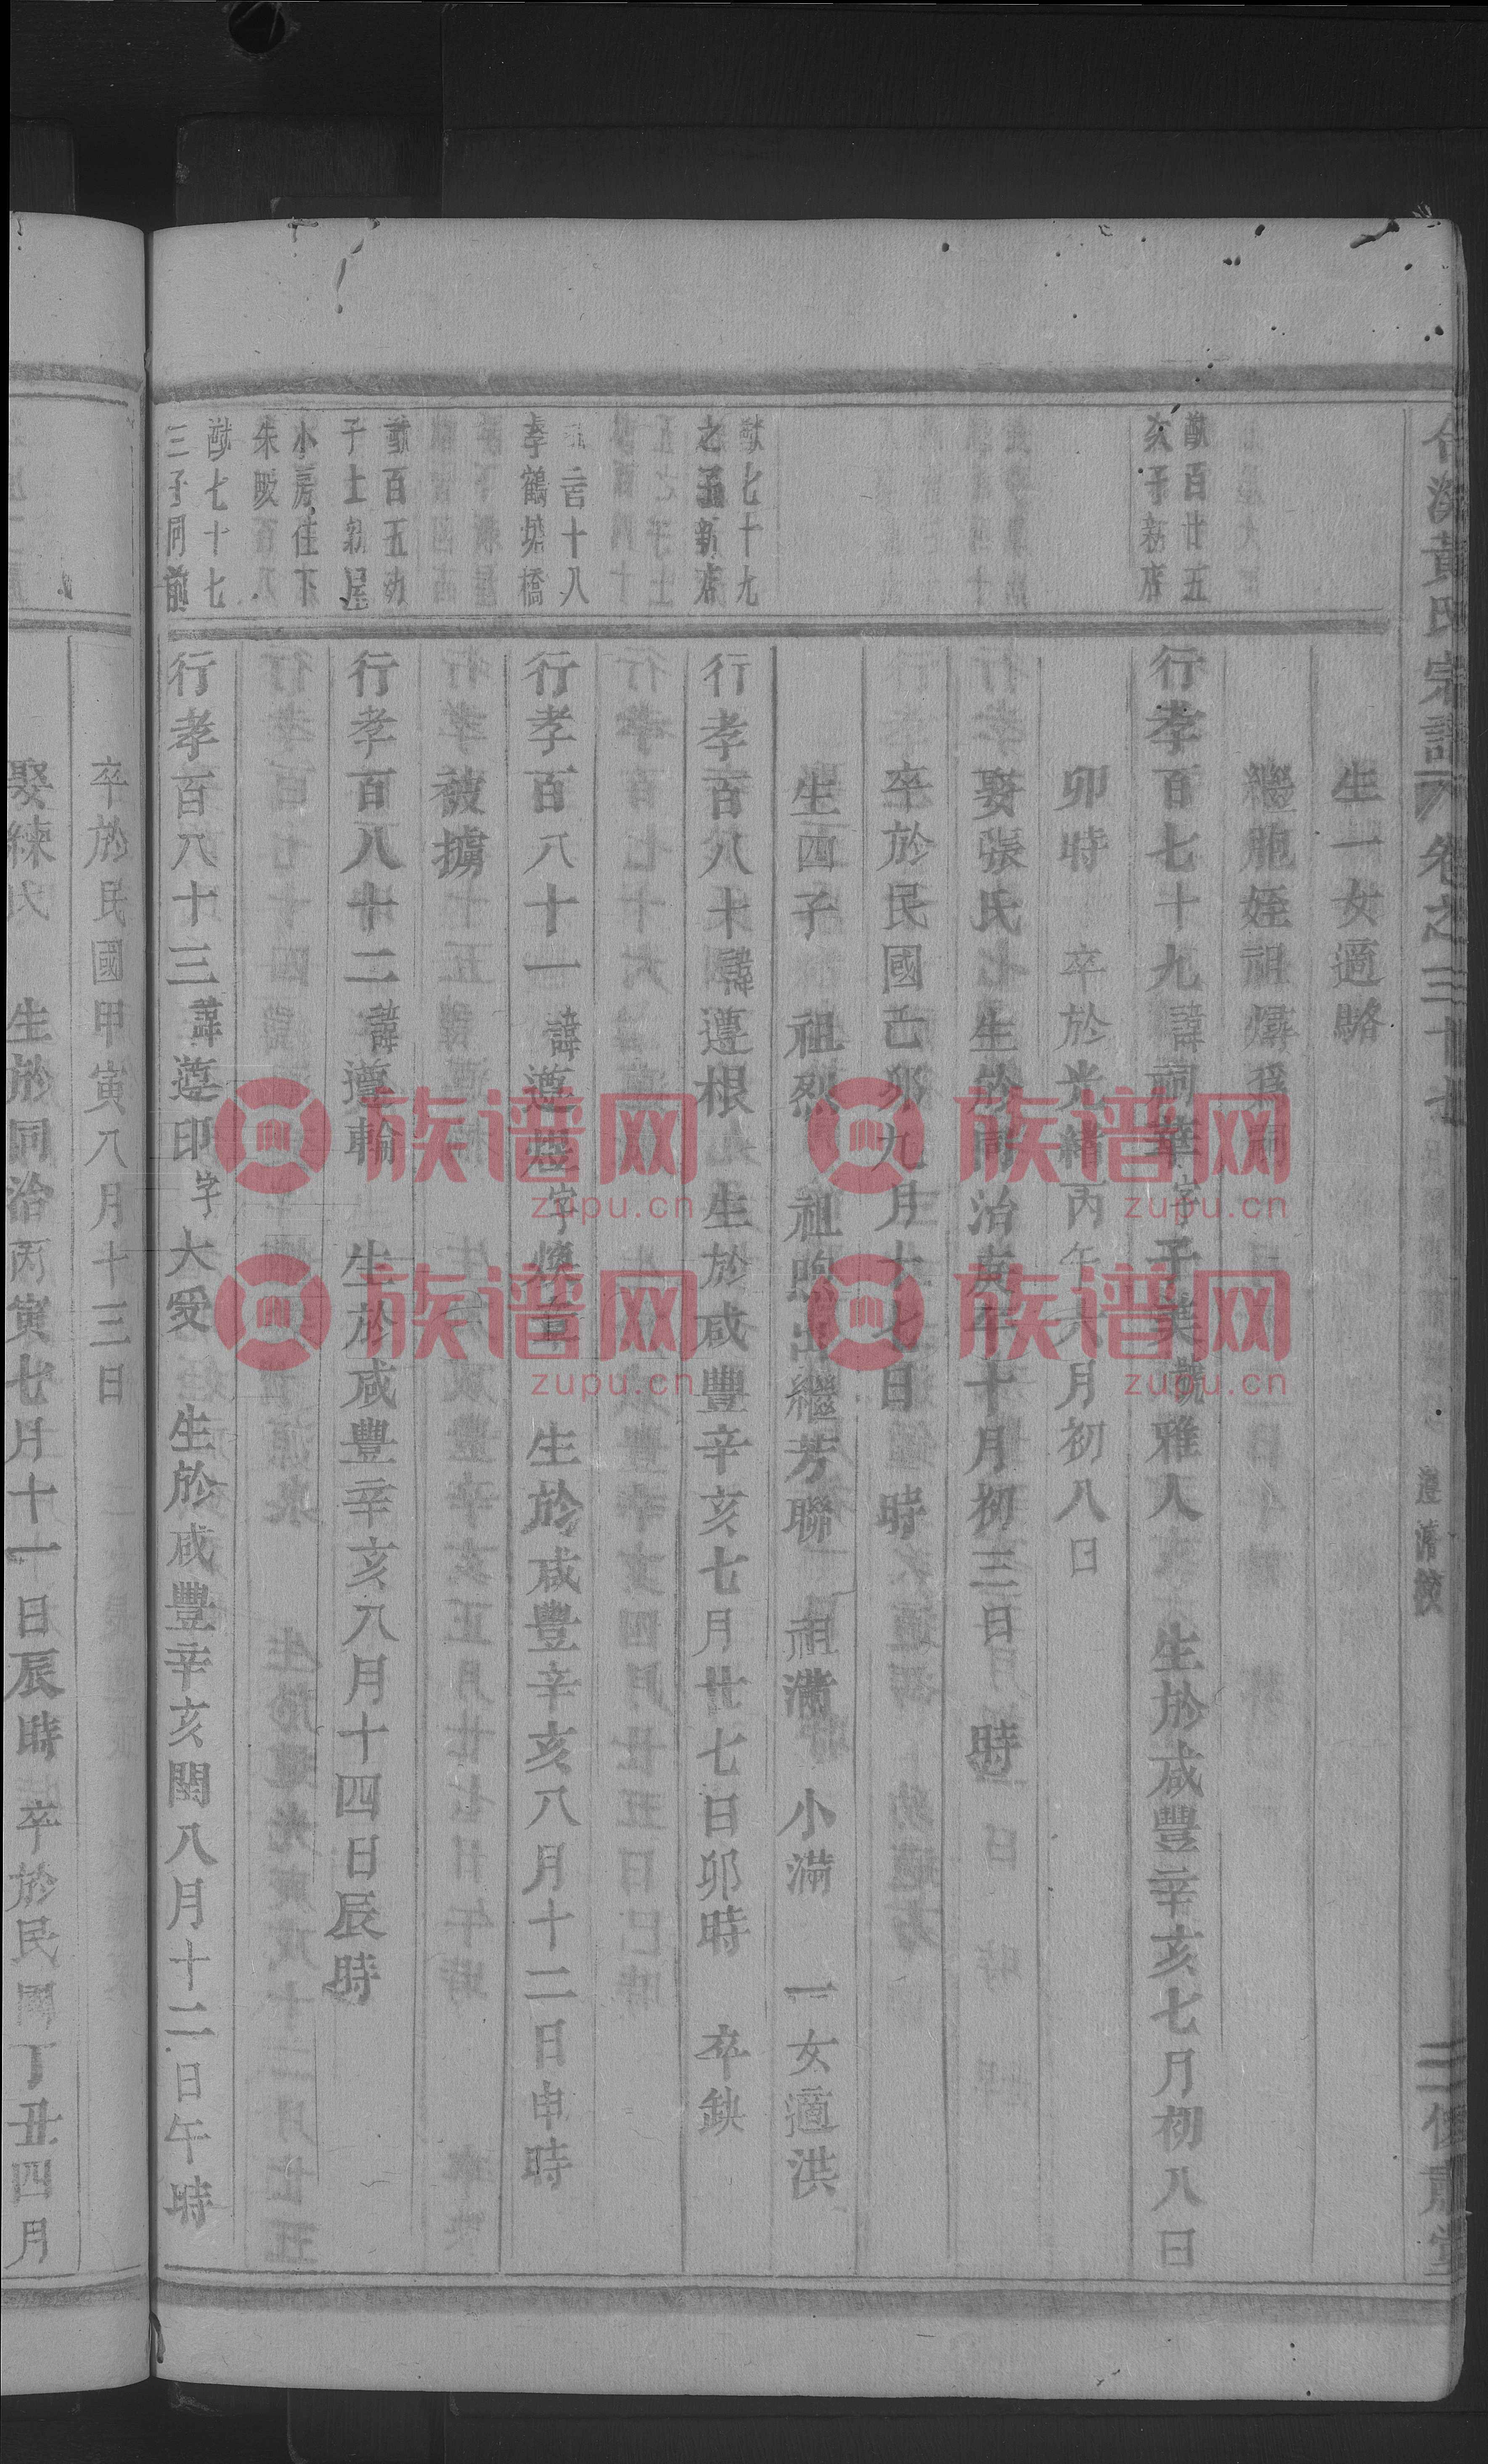 黃氏宗譜 卷之三十七
生一女適駱
繼胞姪祖爝爲嗣
猷百廿五
次子新店
行孝百七十九諱祠華字子美號雅人 生於咸豐辛亥七月初八日
卯時 卒於光緒丙午六月初八日
娶張氏 生於同治庚午十月初三日 時
卒於民國己卯九月十七日 時
生四子 祖烈 祖煦出繼芳聯 祖滿 小滿 一女適洪
猷七十九
之五新店
行孝百八十諱遵根 生於咸豐辛亥七月廿七日卯時 卒缺
百十八
孝鶴墩橋
行孝百八十一諱遵燈字煥章 生於咸豐辛亥八月十二日申時
被擄
猷百五幼
子土新屋
行孝百八十二諱遵輪 生於咸豐辛亥八月十四日辰時
小房住下
朱畈
猷七十七
三子同前
行孝百八十三諱遵印字大受 生於咸豐辛亥閏八月十二日午時
卒於民國甲寅八月十三日
娶練氏 生於同治丙寅七月十一日辰時 卒於民國丁丑四月
zupu.cn
族谱网
zupu.cn
族谱网
zupu.cn
族谱网
zupu.cn
族谱网